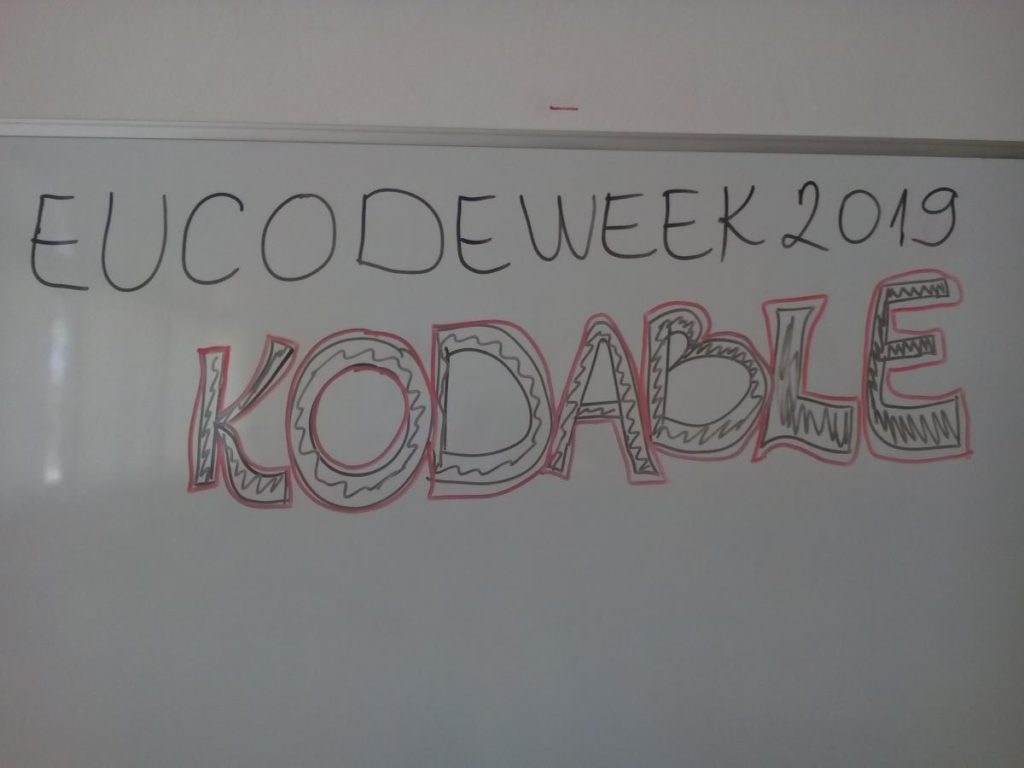 EUCODEWEEK 2019
KODABLE